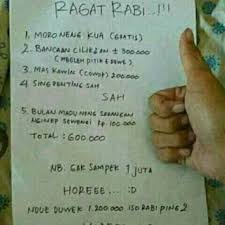 RAGAT RABI..!!!
1. MORO NENG KUA (GRATIS)
2. BANCAAN CILIKAN ± 300.000
(MBELEH PITIK E DEWE)
3. MAS KAWIN (COWOK) 200.000
4. SING PENTING SAH
SAH
5. BULAN MADU NENG SARANGAN
NGINEP SEWENGI Rp. 100.000
TOTAL : 600.000
NB: GAK SAMPEK 1 JUTA
HOREEE... :D
NDUE DUWEK 1.200.000 ISO RABI PING 2